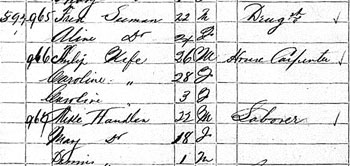 594 965 Seeman 22 M Drugst
Aline Do
966 Philip Fife 26 M House Carpenter
Caroline " 28 F
Caroline 3 F
967 Handlen 22 M Laborer
May Do 18 F
1 M